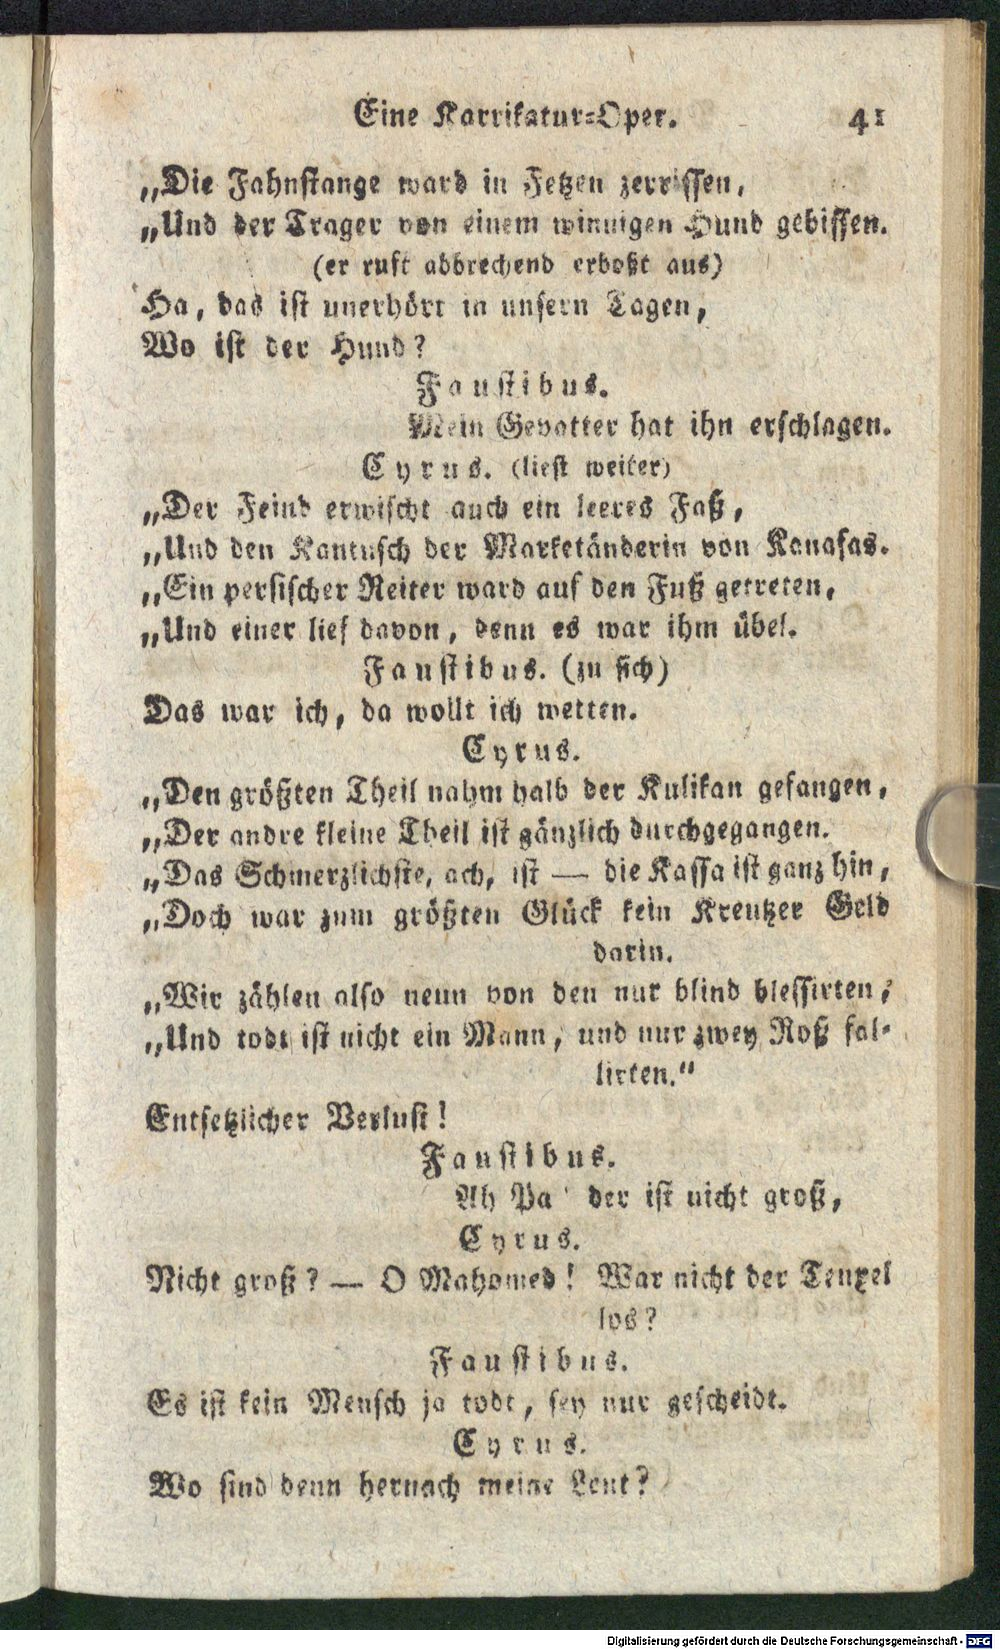 Eine Karrikatur-Oper. 41
„Die Fahnstange ward in Fetzen zerrissen,
„Und der Trager von einem winnigen Hund gebissen.
(er ruft abbrechend erboßt aus)
Ha, das ist unerhört in unsern Tagen,
Wo ist der Hund?
Faustibus.
Mein Gevatter hat ihn erschlagen.
Cyrus. (liest weiter)
„Der Feind erwischt auch ein leeres Faß,
„Und den Kantusch der Marketänderin von Kanafas.
„Ein persischer Reiter ward auf den Fuß getreten,
„Und einer lief davon, denn es war ihm übel.
Faustibus. (zu sich)
Das war ich, da wollt ich wetten.
Cyrus.
„Den größten Theil nahm halb der Kulikan gefangen,
„Der andre kleine Theil ist gänzlich durchgegangen.
„Das Schmerzlichste, ach, ist — die Kassa ist ganz hin,
„Doch war zum größten Glück kein Kreutzer Geld
darin.
„Wir zählen also neun von den nur blind blessirten,
„Und todt ist nicht ein Mann, und nur zwey Roß fal-
lirten.“
Entsetzlicher Verlust!
Faustibus.
Ah Pa der ist nicht groß,
Cyrus.
Nicht groß? — O Mahomed! War nicht der Teuxel
los?
Faustibus.
Es ist kein Mensch ja todt, sey nur gescheidt.
Cyrus.
Wo sind denn hernach meine Leut?
Digitalisierung gefördert durch die Deutsche Forschungsgemeinschaft - DFG